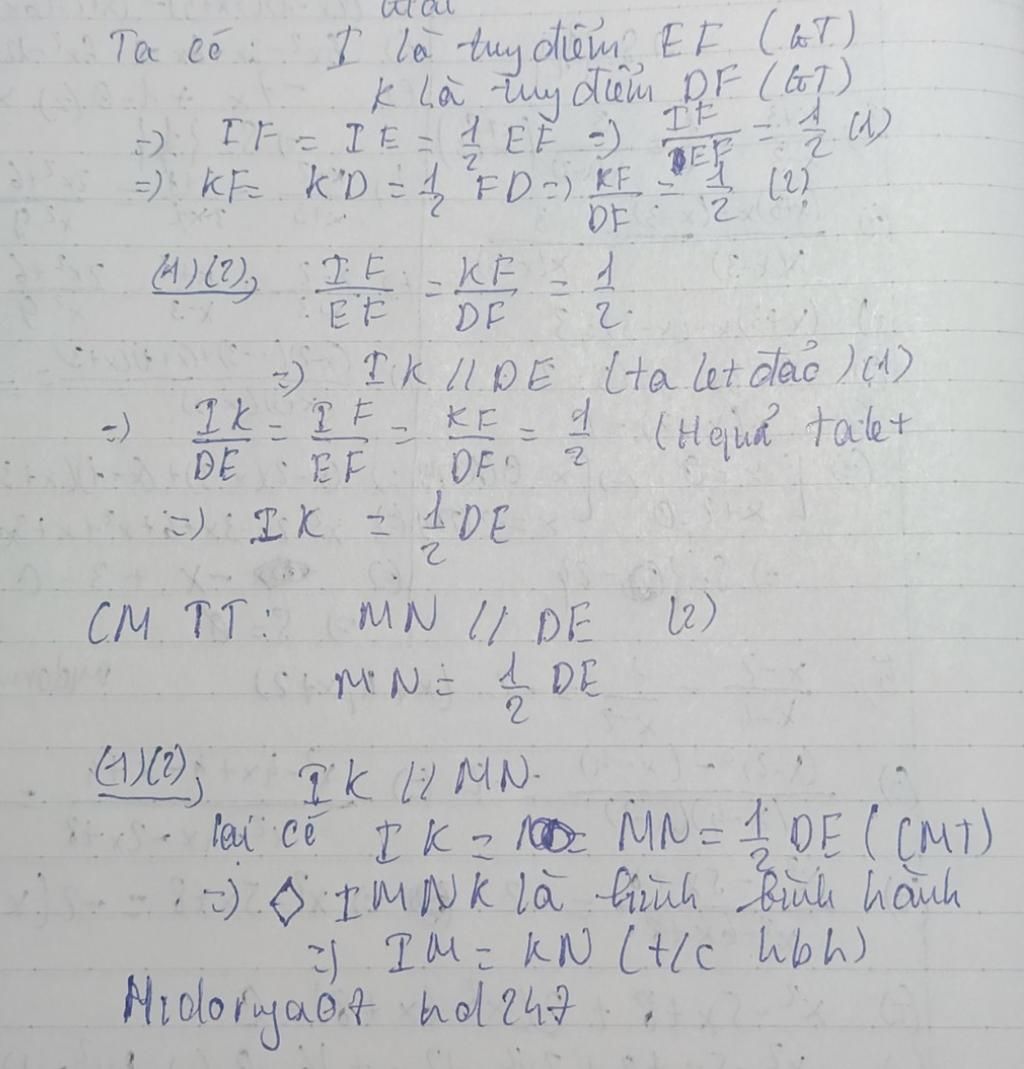 Giải
Ta có: I là tuy điểm EF (GT)
K là tuy điểm DF (GT)
=) IF = IE = 1/2 EF =) IF/EF = 1/2 (1)
=) KF = KD = 1/2 FD =) KF/DF = 1/2 (2)
(1)(2), IF/EF = KF/DF = 1/2
=) IK // DE (ta let đảo) (1)
=) IK/DE = IF/EF = KF/DF = 1/2 (Hquả talet
=) IK = 1/2 DE
CM TT: MN // DE (2)
MN = 1/2 DE
(1)(2), IK // MN
lại có IK = MN = 1/2 DE (CMT)
=) ◇ IMNK là hình bình hành
=) IM = KN (t/c hbh)
Midorya07 hd247